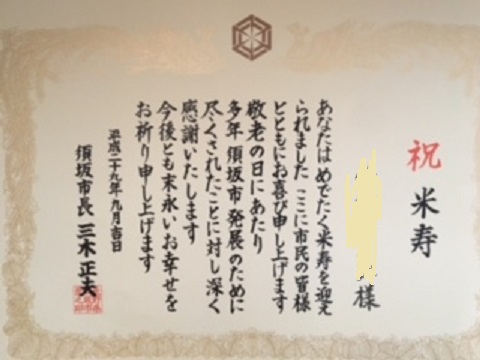 祝 米寿
様
あなたは めでたく米寿を迎え
られました ここに市民の皆様
とともにお喜び申し上げます
敬老の日にあたり
多年 須坂市発展のために
尽くされたことに対し深く
感謝いたします
今後とも末永いお幸せを
お祈り申し上げます
平成二十九年九月吉日
須坂市長 三木正夫